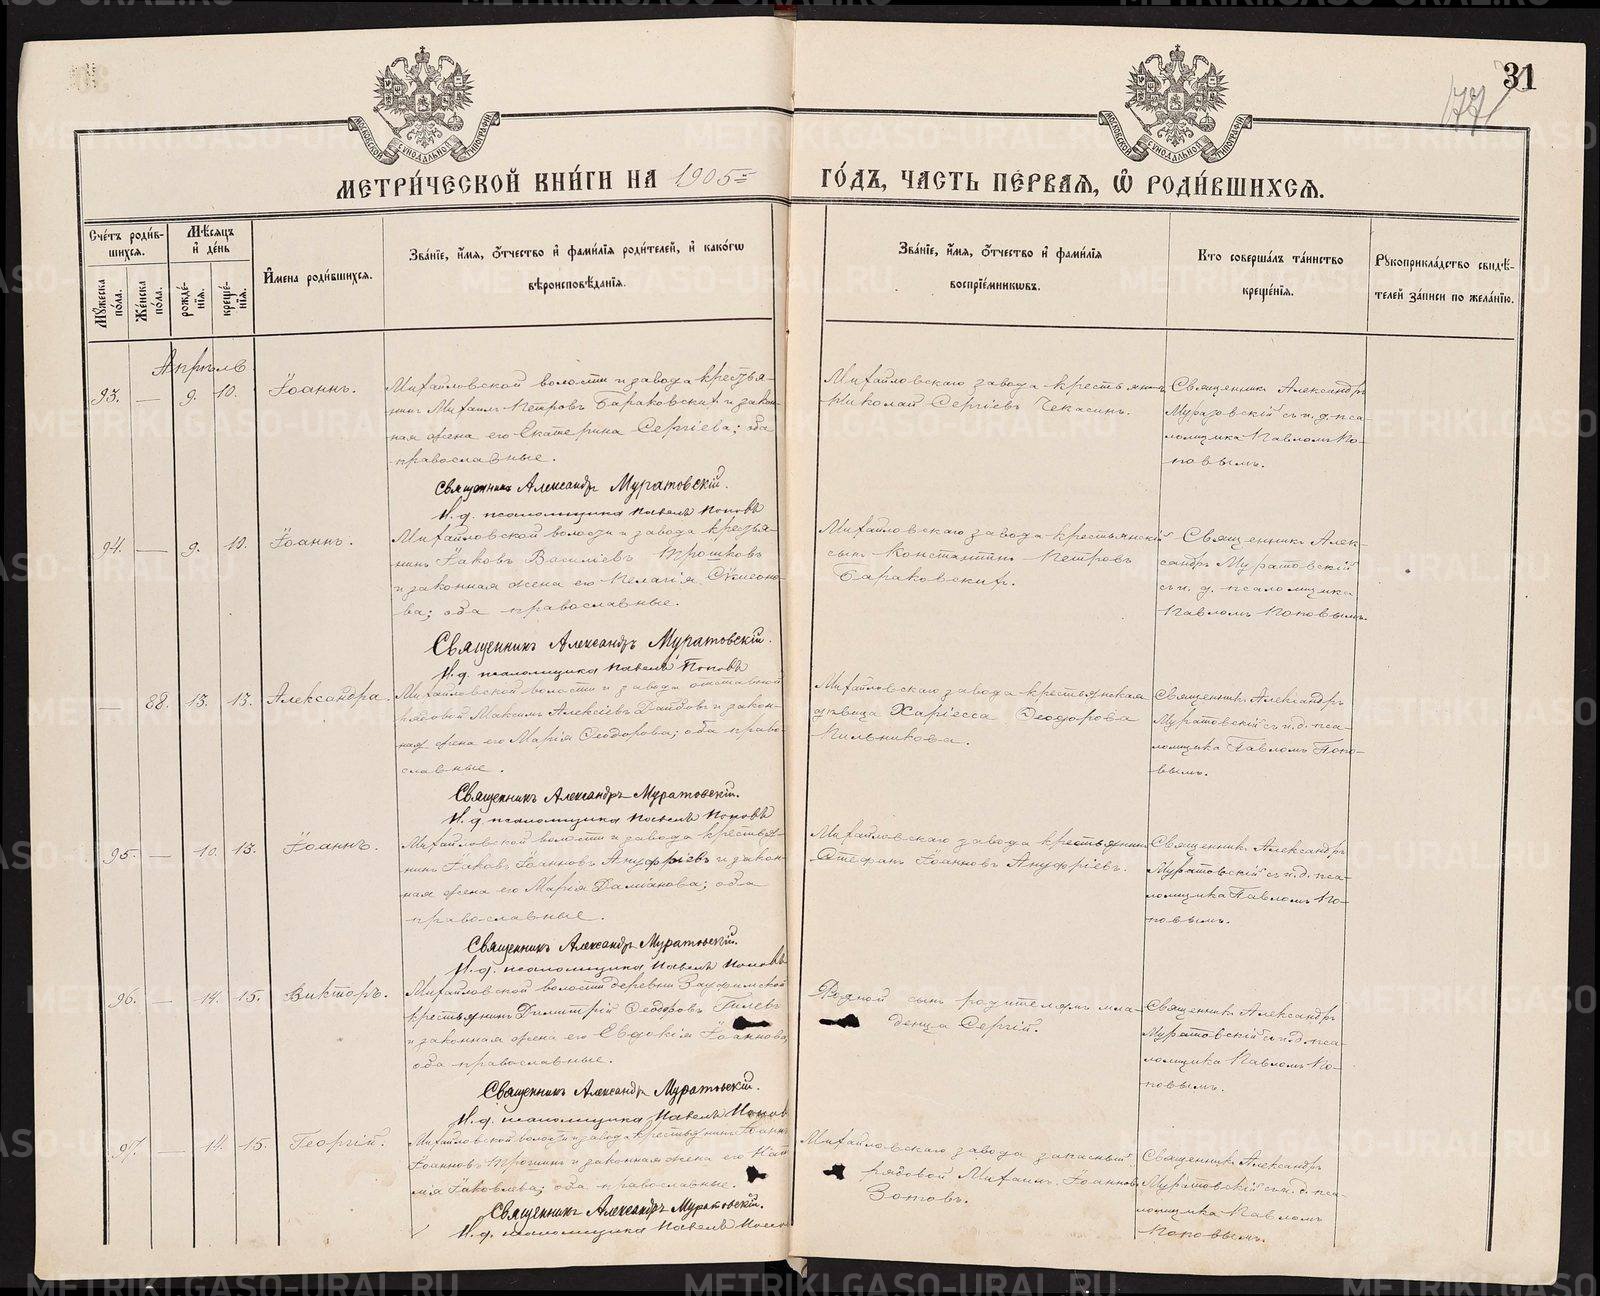 31
177
МОСКОВСКОЙ СѴНОДАЛЬНОЙ ТИПОГРАФІИ
МОСКОВСКОЙ СѴНОДАЛЬНОЙ ТИПОГРАФІИ
МЕТРИ́ЧЕСКОЙ КНИ́ГИ НА 1905 ГО́ДЪ, ЧАСТЬ ПЕ́РВАЯ, Ѡ РОДИ́ВШИХСЯ.
Сче́тъ роди́вшихся.
Мꙋжеска по́ла.
Же́нска по́ла.
Мѣ́сяцъ и́ де́нь
рожде́нїя.
креще́нїя.
И́мена роди́вшихся.
Зва́нїе, и́мя, ѻ́тчество и́ фами́лїя роди́телей, и́ како́гѡ
вѣроисповѣ́данїя.
Зва́нїе, и́мя, ѻ́тчество и́ фами́лїя
воспрїе́мникѡвъ.
Кто соверша́лъ та́инство
креще́нїя.
Рꙋкоприкла́дство свидѣ́-
телей за́писи по жела́нїю.
Апрѣль
93. — 9. 10. Іоаннъ.
Михайловской волости и завода крестья-
нинъ Михаилъ Петровъ Бараковскихъ и закон-
ная жена его Екатерина Сергіева; оба
православные.
Священникъ Александръ Муратовскій.
И. д. псаломщика Павелъ Поповъ
Михайловскаго завода крестьянинъ
Николай Сергіевъ Чекасинъ.
Священникъ Александръ
Муратовскій съ и. д. пса-
ломщика Павломъ По-
повымъ.
94. — 9. 10. Іоаннъ.
Михайловской волости и завода крестья-
нинъ Іаковъ Василіевъ Трошковъ
и законная жена его Пелагія Симеоно-
ва; оба православные.
Священникъ Александръ Муратовскій.
И. д. псаломщика Павелъ Поповъ
Михайловскаго завода крестьянскій
сынъ Константинъ Петровъ
Бараковскихъ.
Священникъ Алек-
сандръ Муратовскій
съ и. д. псаломщика
Павломъ Поповымъ.
— 88. 13. 13. Александра.
Михайловской волости и завода отставной
рядовой Максимъ Алексіевъ и закон-
ная жена его Марія Ѳеодорова; оба право-
славные.
Священникъ Александръ Муратовскій.
И. д. псаломщика Павелъ Поповъ
Михайловскаго завода крестьянская
дѣвица Харіесса Ѳеодорова
Пильникова.
Священникъ Александръ
Муратовскій съ и. д. пса-
ломщика Павломъ Попо-
вымъ.
95. — 10. 13. Іоаннъ.
Михайловской волости и завода крестья-
нинъ Іаковъ Іоанновъ Ануфріевъ и закон-
ная жена его Марія Даміанова; оба
православные.
Священникъ Александръ Муратовскій.
И. д. псаломщика Павелъ Поповъ
Михайловскаго завода крестьянинъ
Стефанъ Іоанновъ Ануфріевъ.
Священникъ Александръ
Муратовскій съ и. д. пса-
ломщика Павломъ По-
повымъ.
96. — 14. 15. Викторъ.
Михайловской волости деревни Зауфимской
крестьянинъ Димитрій Ѳеодоровъ Гилевъ
и законная жена его Евдокія Іоаннова,
оба православные.
Священникъ Александръ Муратовскій.
И. д. псаломщика Павелъ Поповъ
Родной сынъ родителямъ мла-
денца Сергій.
Священникъ Александръ
Муратовскій съ и. д. пса-
ломщика Павломъ По-
повымъ.
97. — 14. 15. Георгій.
Михайловской волости и завода крестьянинъ Іоаннъ
Іоанновъ и законная жена его
Іаковлева; оба православные.
Священникъ Александръ Муратовскій.
И. д. псаломщика Павелъ
Михайловскаго завода запасный
рядовой Михаилъ Іоанновъ
Зотовъ.
Священникъ Александръ
Муратовскій съ и. д. пса-
ломщика Павломъ
Поповымъ.
METRIKI.GASO-URAL.RU